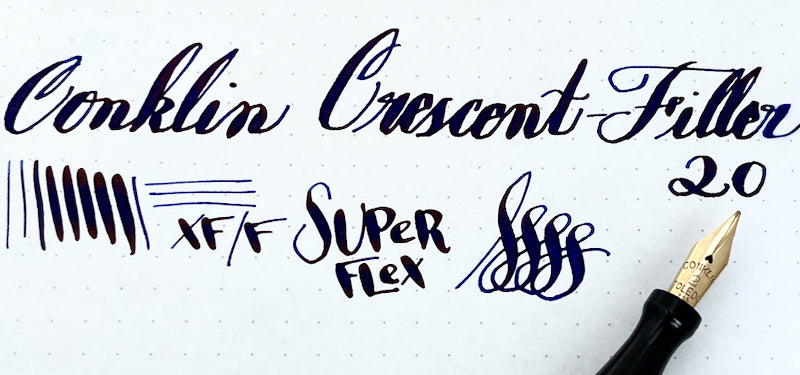 Conklin Crescent-Filler
20
XF/F SUPER
FLEX
CONKLIN
TOLEDO